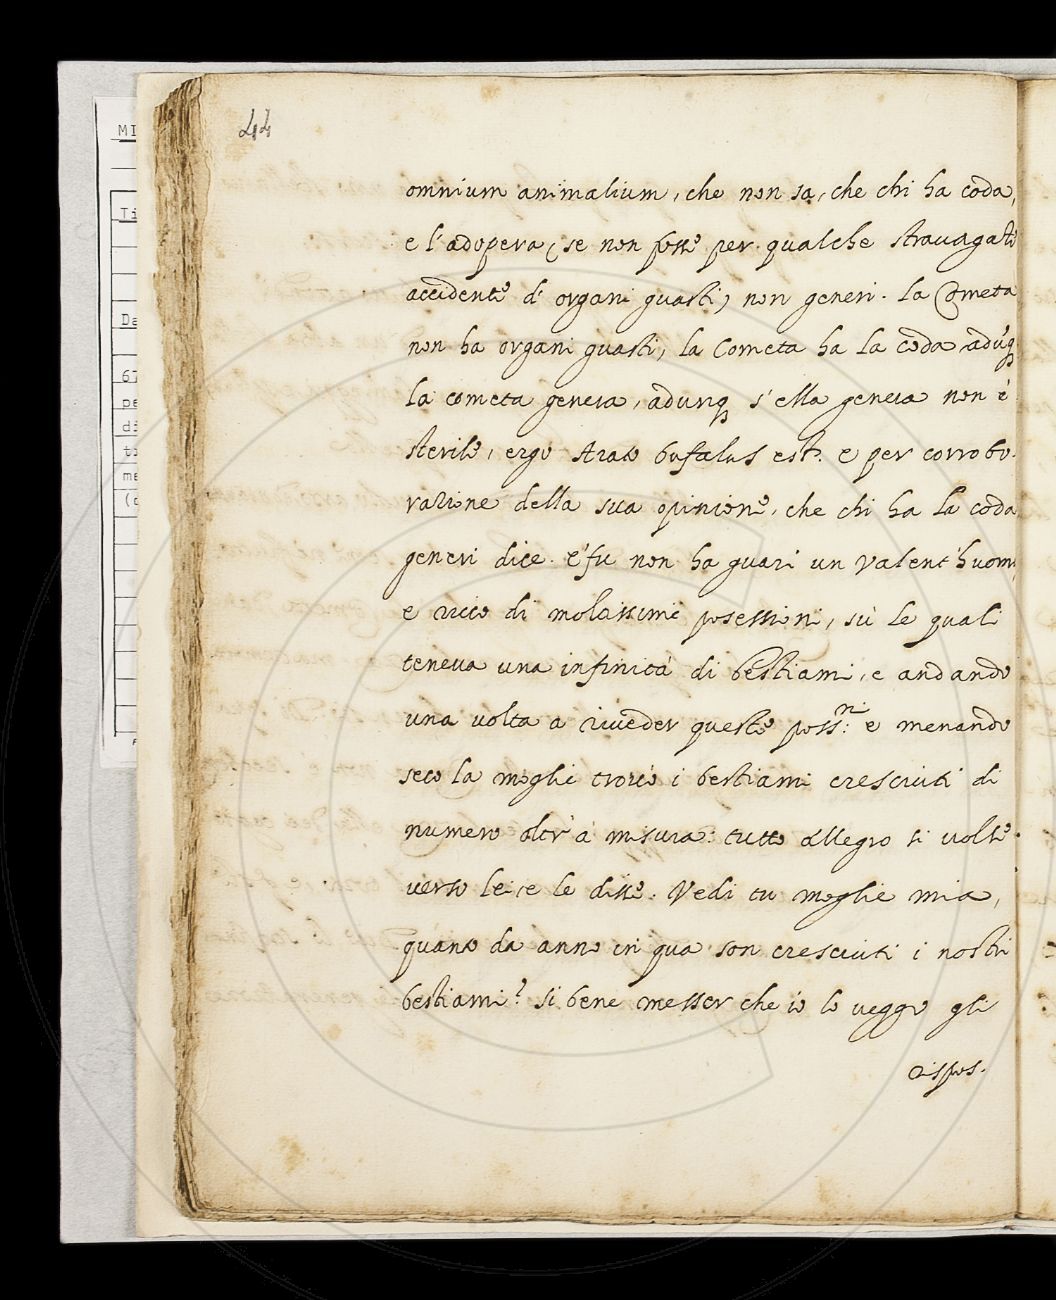 MI
Ti
Da
67
pe
di
ti
me
44
omnium animalium, che non sa, che chi ha coda,
e l'adopera (se non fosse per qualche strauagāte
accidente d'organi guasti) non generi. La Cometa
non ha organi guasti, la Cometa ha la coda adūq
la cometa genera, adunq s'ella genera non è
sterile, ergo Arato bufalus est. e per corrobo-
razione della sua opinione, che chi ha la coda
generi dice. E' fu non ha guari un valent'huom,
e ricco di moltissimi posessioni, sù le quali
teneua una infinità di bestiami, e andando
una uolta a riueder queste poss.ni e menando
seco la moglie trouò i bestiami cresciuti di
numero oltr'à misura: tutto allegro si uolse
uerso lei, e le disse. Vedi tu moglie mia,
quanto da anno in qua son cresciuti i nostri
bestiami? Si bene messer che io lo ueggo gli
rispos.